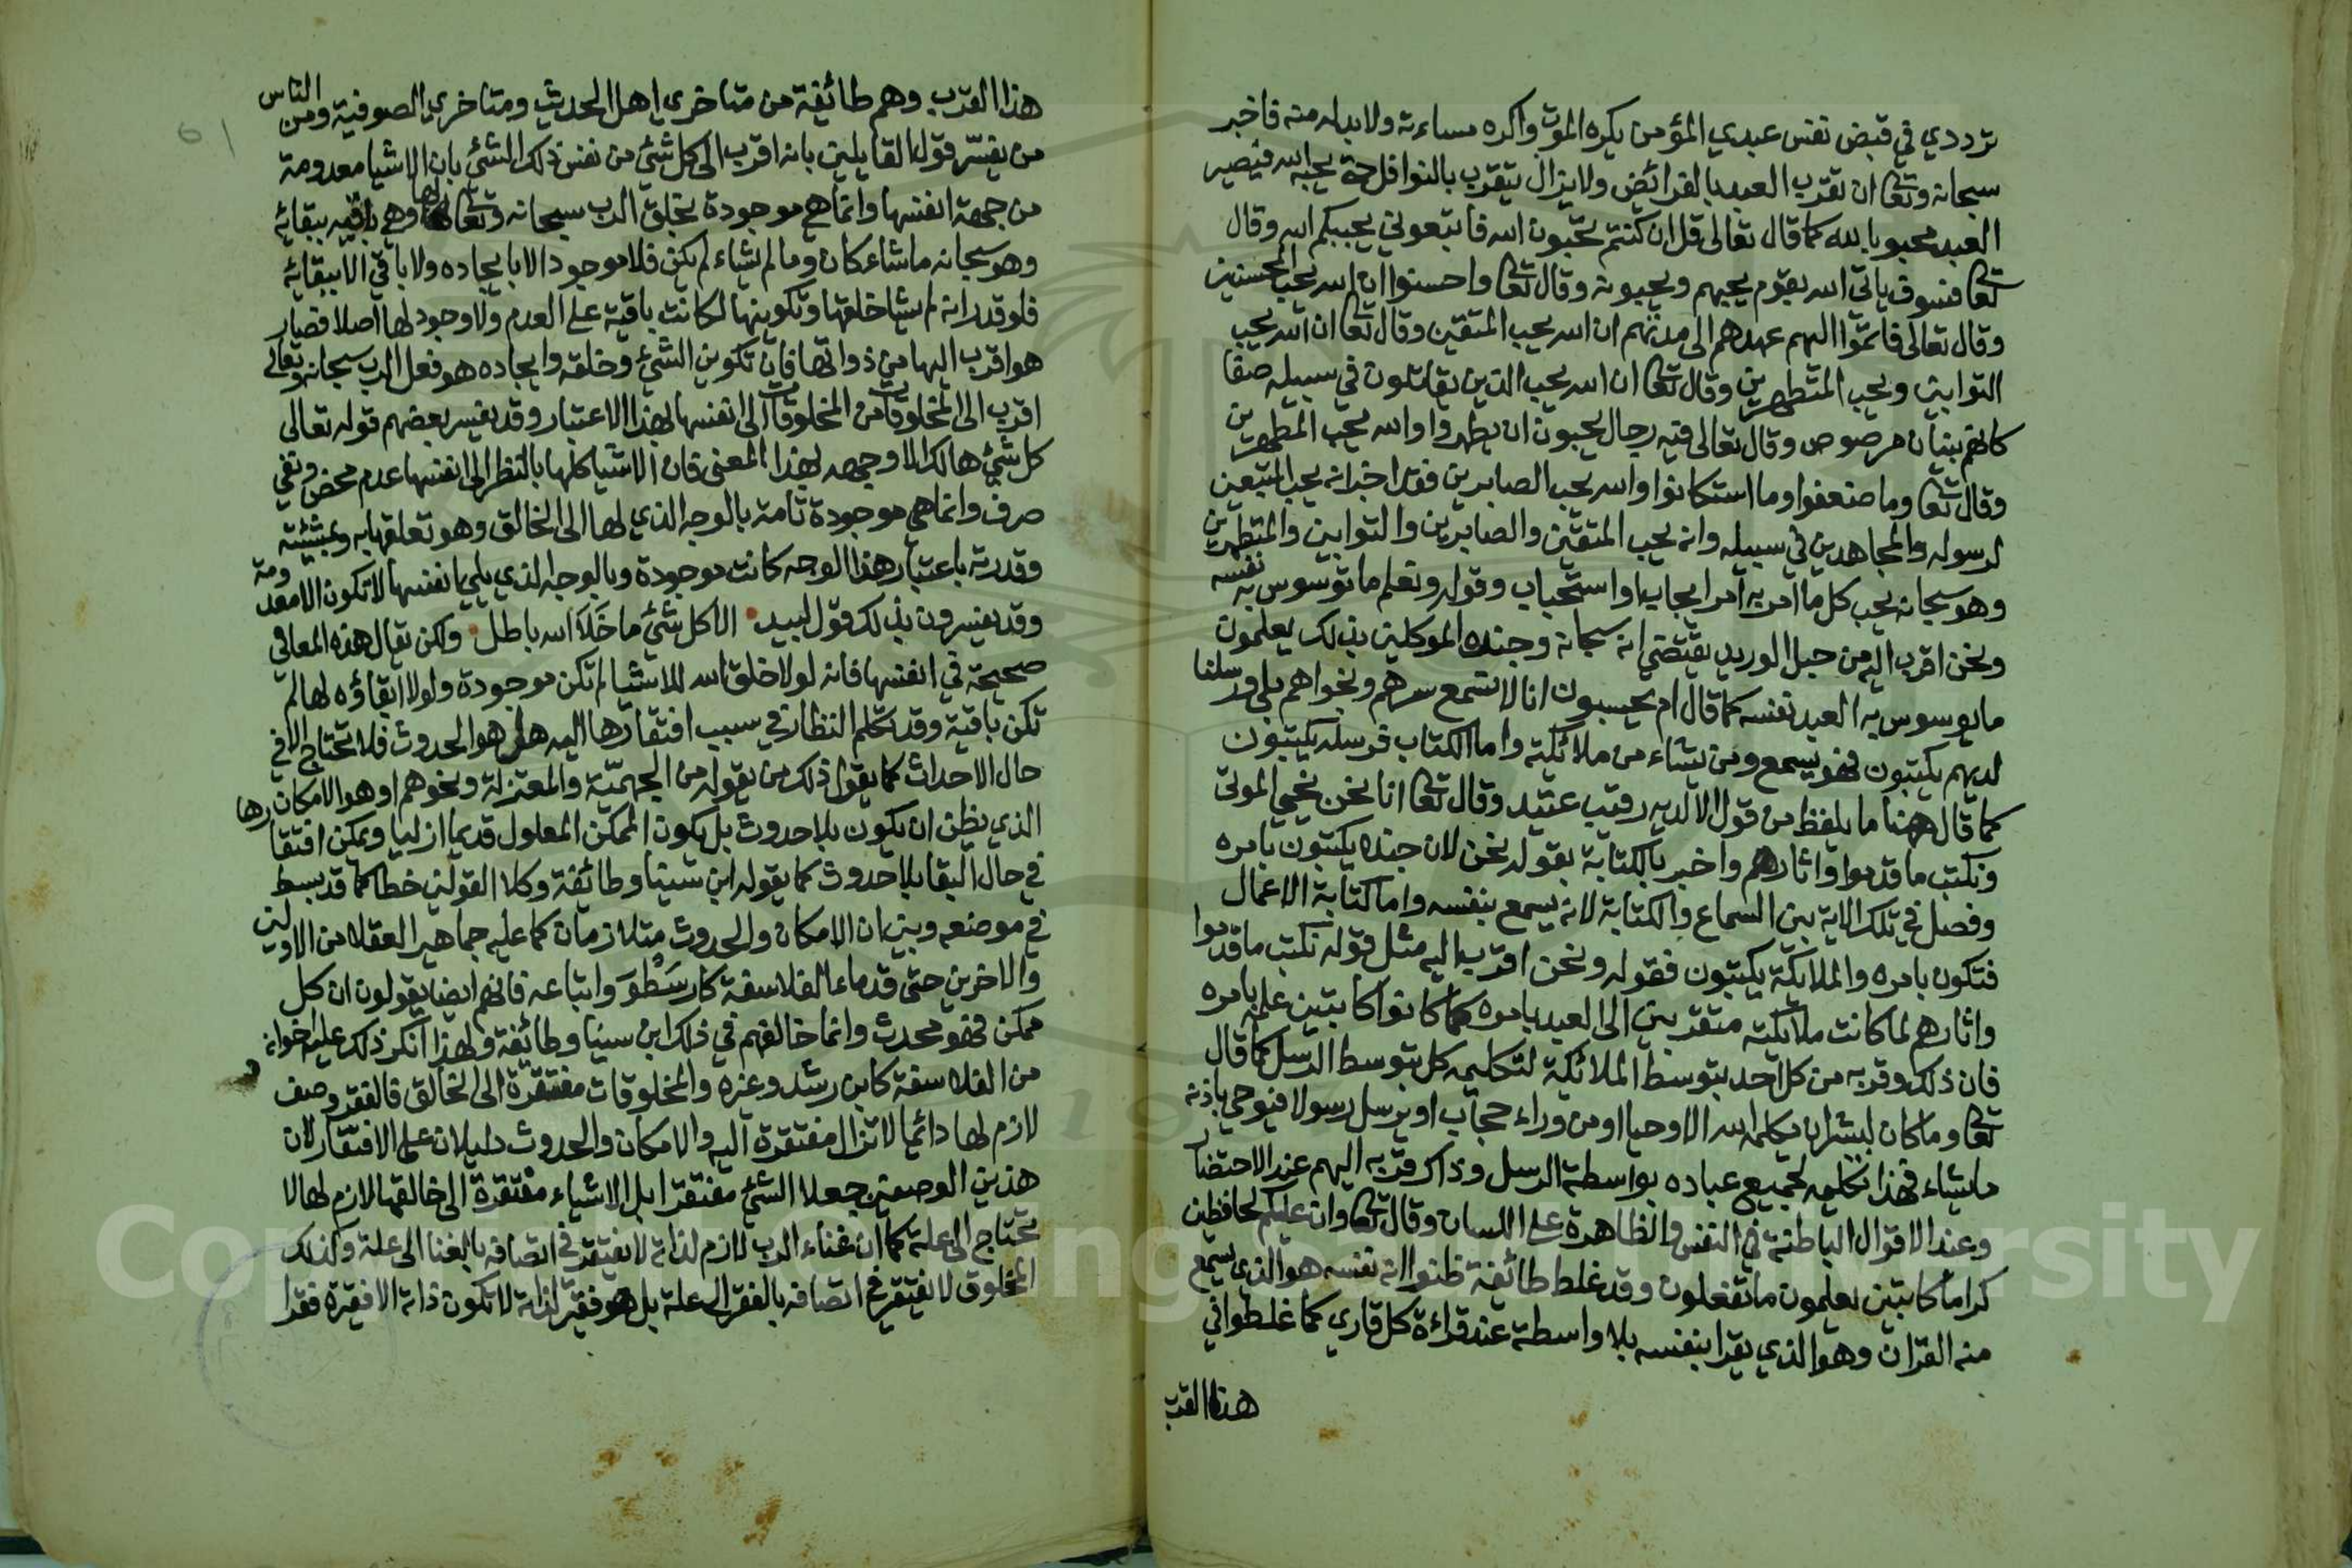 ترددي في قبض نفس عبدي المؤمن يكره الموت واكره مساءته ولابد له منه فاخبر
سبحانه وتعا ان تقرب العبد بالفرائض ولا يزال يتقرب بالنوافل حتى يحبه الله فيصير
العبد محبوبا لله كما قال تعالى قل ان كنتم تحبون الله فاتبعوني يحببكم الله وقال
تعا فسوف ياتي الله بقوم يحبهم ويحبونه وقال تعا واحسنوا ان الله يحب المحسنين
وقال تعالى فاتموا اليهم عهدهم الى مدتهم ان الله يحب المتقين وقال تعا ان الله يحب
التوابين ويحب المتطهرين وقال تعا ان الله يحب الذين يقاتلون في سبيله صفا
كانهم بنيان مرصوص وقال تعالى فيه رجال يحبون ان يطهروا والله يحب المطهرين
وقال تعا وما ضعفوا وما استكانوا والله يحب الصابرين فقد اخبر انه يحب المتبعين
لرسوله والمجاهدين في سبيله وانه يحب المتقين والصابرين والتوابين والمتطهرين
وهو سبحانه يحب كل ما امر به امر ايجاب او استحباب وقوله ونعلم ما توسوس به نفسه
ونحن اقرب اليه من حبل الوريد يقتضي انه سبحانه وجنده الموكلين بذلك يعلمون
ما يوسوس به العبد نفسه كما قال ام يحسبون انا لا نسمع سرهم ونجواهم بلى ورسلنا
لديهم يكتبون فهو يسمع ومن يشاء من ملائكته واما الكتاب فرسله يكتبون
كما قال ههنا ما يلفظ من قول الا لديه رقيب عتيد وقال تعا انا نحن نحيي الموتى
ونكتب ما قدموا واثارهم واخبر بالكتابة بقوله نحن لان جنده يكتبون بامره
وفصل في تلك الاية بين السماع والكتابة لانه يسمع بنفسه واما كتابة الاعمال
فتكون بامره والملائكة يكتبون فقوله ونحن اقرب اليه مثل قوله نكتب ما قدموا
واثارهم لما كانت ملائكته متقربين الى العبد بامره كما كانوا كاتبين عليه بامره
فان ذلك وقربه من كل احد بتوسط الملائكة لتكليمه كل بتوسط الرسل كما قال
تعا وما كان لبشر ان يكلمه الله الا وحيا او من وراء حجاب او يرسل رسولا فيوحي باذنه
ما يشاء فهذا تكليمه لجميع عباده بواسطة الرسل وذاك قربه اليهم عند الاحتضار
وعند الاقوال الباطنة في النفس والظاهرة على اللسان وقال تعا وان عليكم لحافظين
كراما كاتبين يعلمون ما تفعلون وقد غلط طائفة ظنوا انه نفسه هو الذي يسمع
منه القران وهو الذي يقرا بنفسه بلا واسطة عند قراءة كل قاري كما غلطوا في
هذا القرب
هذا القرب وهم طائفة من متاخري اهل الحديث ومتاخري الصوفية ومن الناس
من يفسر قول القايلين بانه اقرب الى كل شئ من نفس ذلك الشئ بان الاشيا معدومة
من جهة انفسها وانما هي موجودة بخلق الرب سبحانه وتعالى لها وهي باقيه ببقائه
وهو سبحانه ما شاء كان وما لم يشاء لم يكن فلا موجود الا بايجاده ولا باقي الا ببقائه
فلو قدر انه لم يشا خلقها وتكوينها لكانت باقية على العدم ولا وجود لها اصلا فصار
هو اقرب اليها من ذواتها فان تكوين الشئ وخلقه وايجاده هو فعل الرب سبحانه وتعالى
اقرب الى المخلوقات من المخلوقات الى انفسها بهذا الاعتبار وقد يفسر بعضهم قوله تعالى
كل شئ هالك الا وجهه بهذا المعنى فان الاشيا كلها بالنظر الى انفسها عدم محض ونفي
صرف وانما هي موجودة تامة بالوجه الذي لها الى الخالق وهو تعلقها به وبمشيئته
وقدرته باعتبار هذا الوجه كانت موجودة وبالوجه الذي يلي انفسها لا تكون الا معدومة
وقد يفسرون بذلك قول لبيد الا كل شئ ما خلا الله باطل ولكن يقال هذه المعاني
صحيحة في انفسها فانه لولا خلق الله للاشيا لم تكن موجودة ولولا ابقاؤه لها لم
تكن باقية وقد تكلم النظار في سبب افتقارها اليه هل هو الحدوث فلا تحتاج الا في
حال الاحداث كما يقول ذلك من يقوله من الجهمية والمعتزلة ونحوهم او هو الامكان
الذي يظن ان يكون بلا حدوث بل يكون الممكن المعلول قديما ازليا ويمكن افتقارها
في حال البقا بلا حدوث كما يقوله ابن سينا وطائفة وكلا القولين خطا كما قد بسط
في موضعه وبين ان الامكان والحدوث متلازمان كما عليه جماهير العقلا من الاولين
والاخرين حتى قدماء الفلاسفة كارسطو واتباعه فانهم ايضا يقولون ان كل
ممكن فهو محدث وانما خالفهم في ذلك ابن سينا وطائفة ولهذا انكر ذلك عليه اخوانه
من الفلاسفة كابن رشد وغيره والمخلوقات مفتقرة الى الخالق فالفقر وصف
لازم لها دائما لا تزال مفتقرة اليه والامكان والحدوث دليلان على الافتقار لان
هذين الوصفين جعلا الشئ مفتقرا بل الاشياء مفتقرة الى خالقها لازم لها لا
تحتاج الى علة كما ان غناء الرب لازم لذاته لا يفتقر في اتصافه بالغنا الى علة وكذلك
المخلوق لا يفتقر في اتصافه بالفقر الى علة بل هو فقير لذاته لا تكون ذاته الا فقيرة فقرا